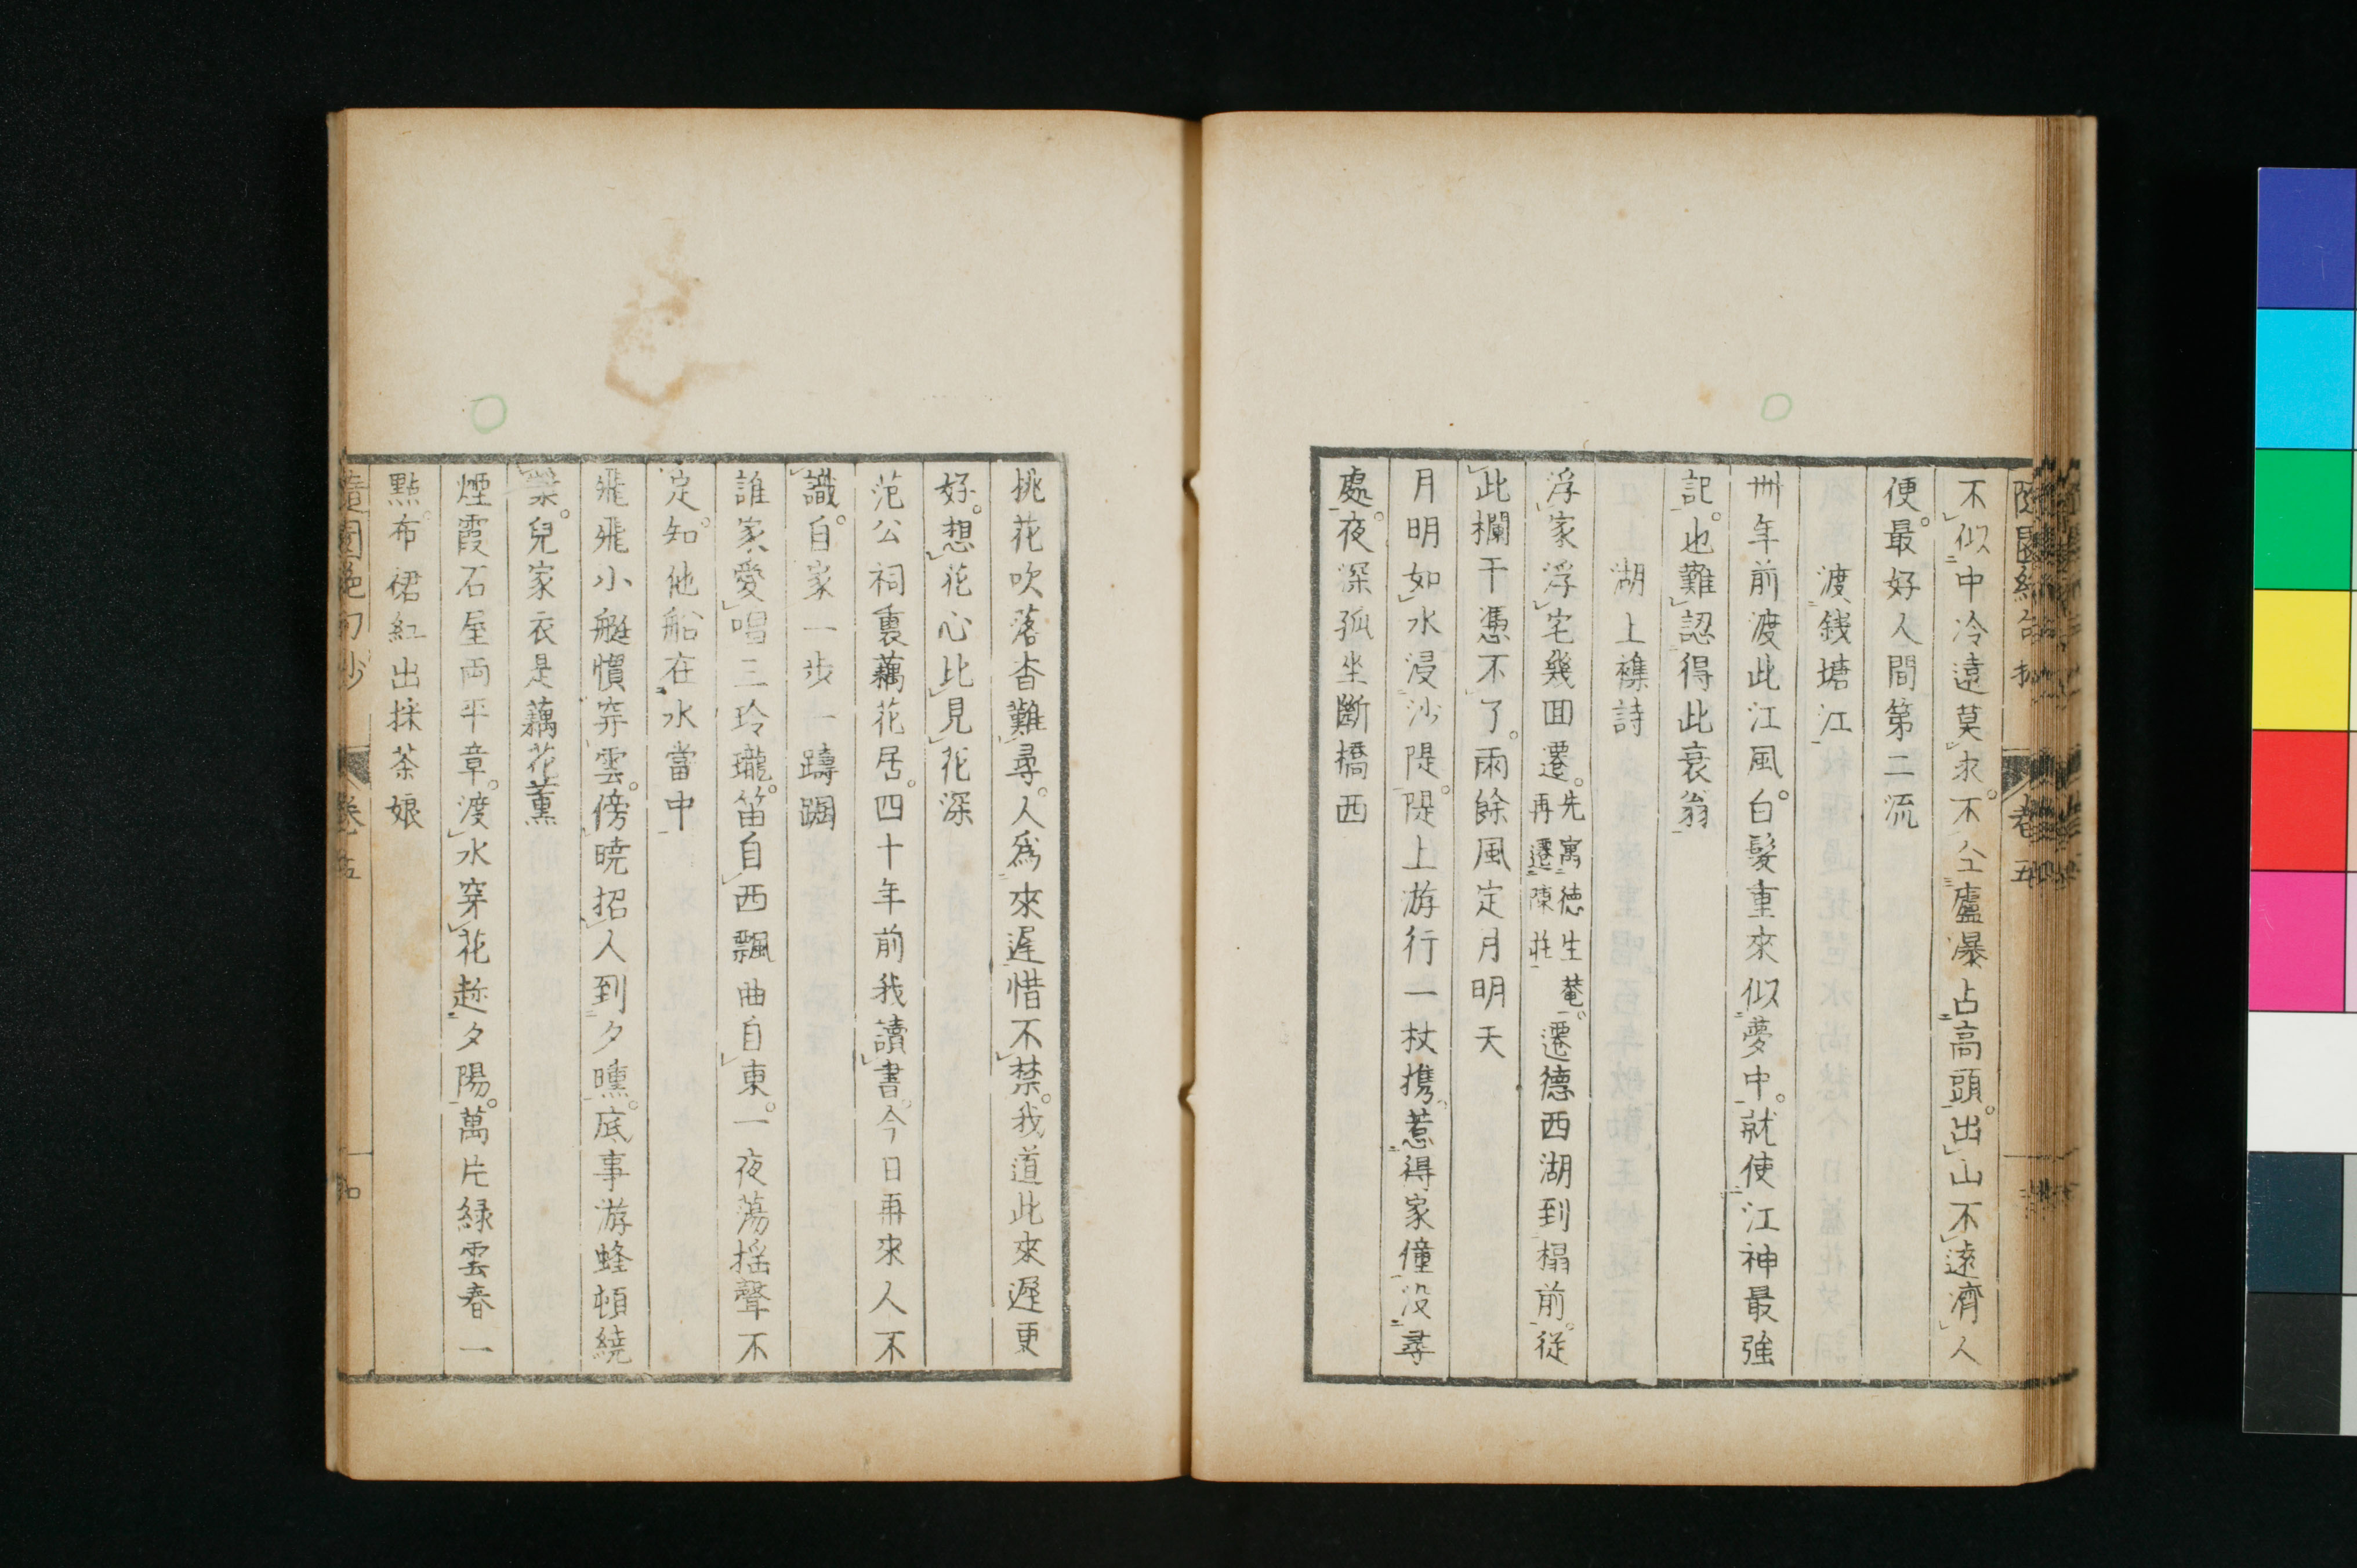 不似中冷遠莫求。不仝廬瀑占高頭。出山不遠濟人
便。最好人間第二流
渡錢塘江
卅年前渡此江風。白髮重來似夢中。就使江神最強
記。也難認得此衰翁
湖上襍詩
浮家浮宅幾回遷。先寓德生菴。遷德西湖到榻前。從
再遷陳莊
此欄干憑不了。雨餘風定月明天
月明如水浸沙隄。隄上游行一杖携。惹得家僮没尋
處。夜深孤坐斷橋西
桃花吹落杳難尋。人爲來遲惜不禁。我道此來遲更
好。想花心比見花深
范公祠裏藕花居。四十年前我讀書。今日再來人不
識。自家一步一躊躕
誰家愛唱三玲瓏。笛自西飄曲自東。一夜蕩搖聲不
定。知他船在水當中
飛飛小艇慣穿雲。傍曉招人到夕曛。底事游蜂頓繞
槳。兒家衣是藕花薰
煙霞石屋両平章。渡水穿花趂夕陽。萬片緑雲春一
點。布裙紅出採茶娘
隨園絶句抄 卷五